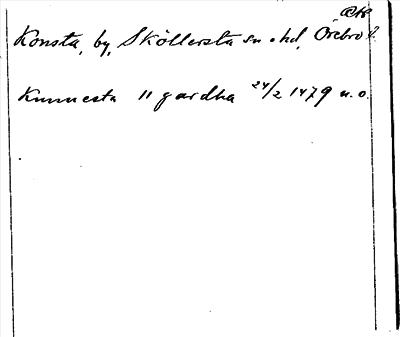 Konsta, by, Sköllersta sn o hd, Örebro l.
Kunnesta 11 gardha 24/2 1479 u. o.